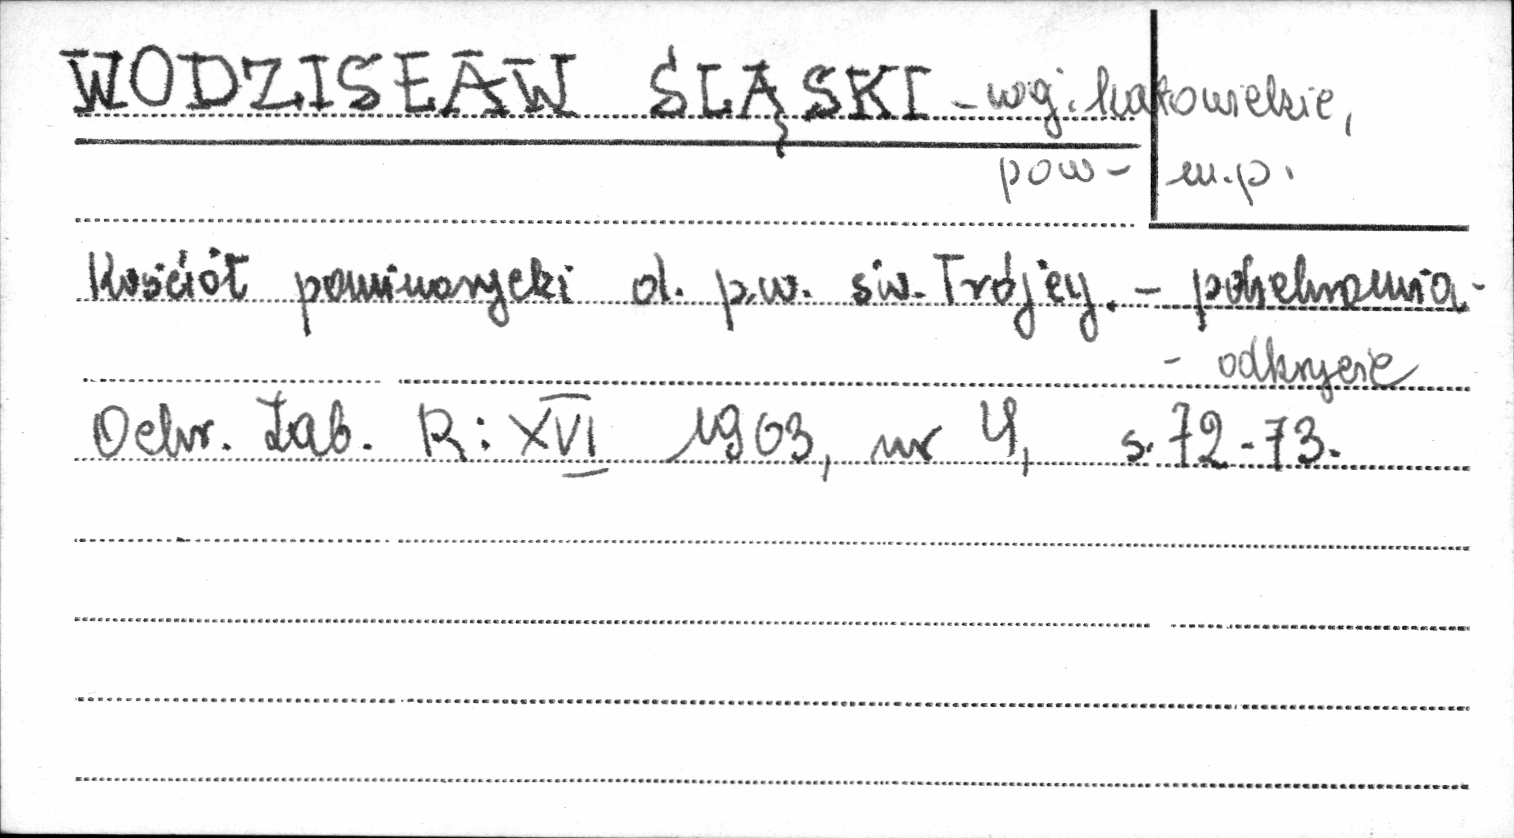 WODZISŁAW ŚLĄSKI - woj. katowickie,
pow - m.p.
Kościół pominorycki d. p.w. św. Trójcy. - polichromia -
- odkrycie
Ochr. Zab. R: XVI 1963, nr 4, s. 72-73.